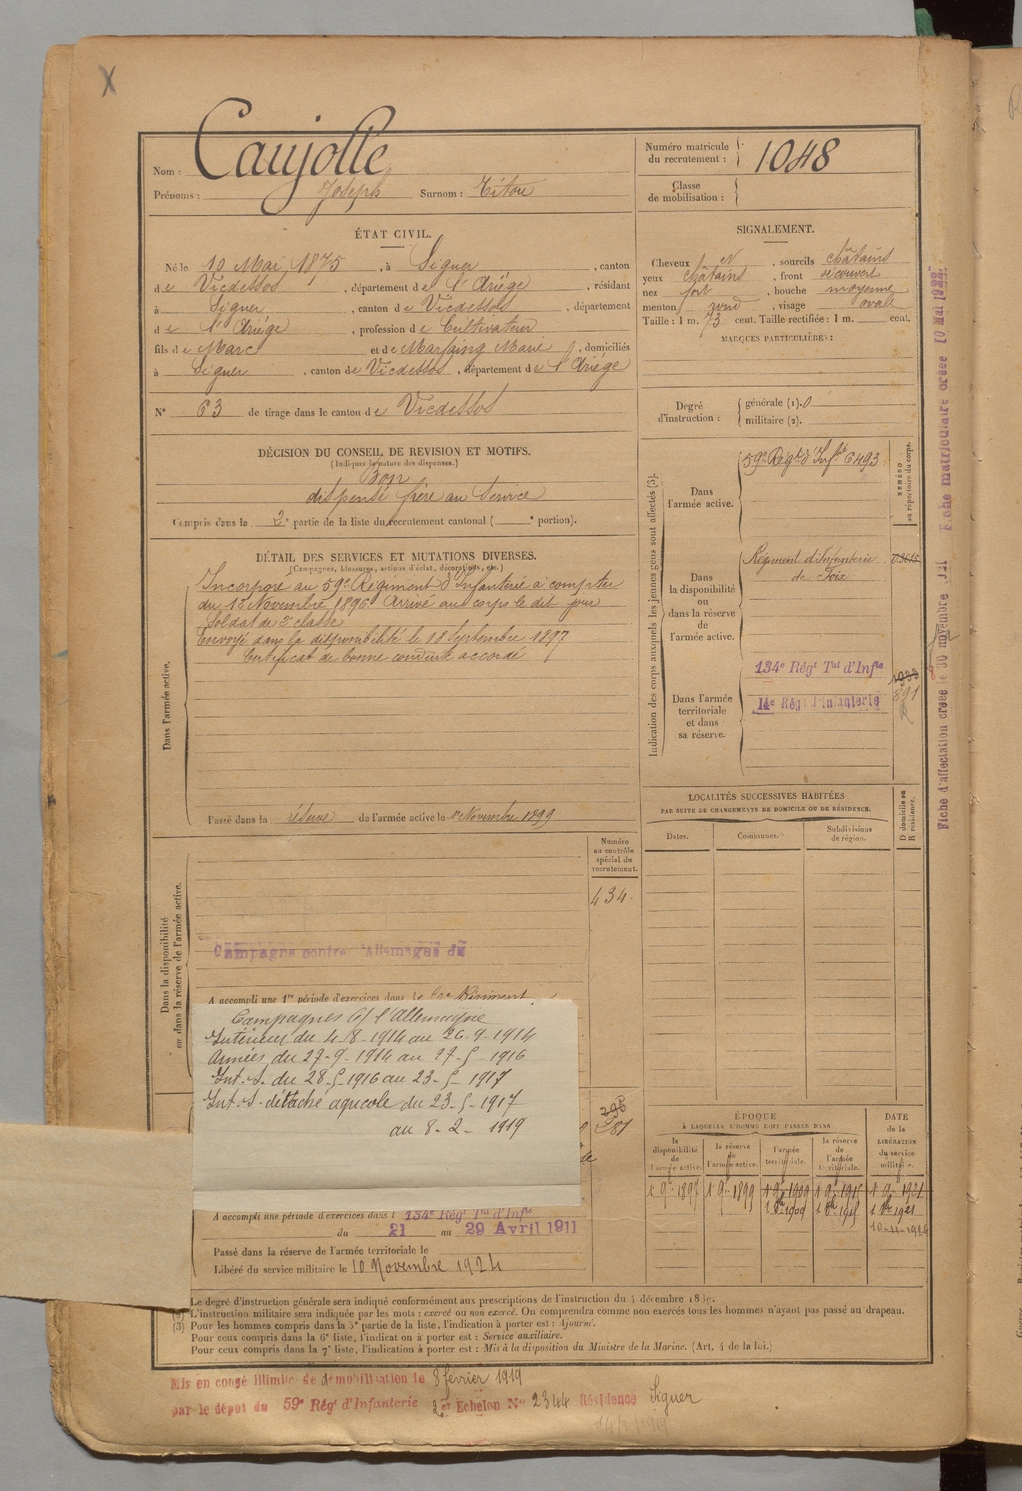 X
Nom : Caujolle
Prénoms : Joseph Surnom : Titou
Numéro matricule du recrutement : 1048
Classe de mobilisation :
ÉTAT CIVIL.
Né le 10 Mai 1875, à Siguer, canton
de Vicdessos, département de l'Ariége, résidant
à Siguer, canton de Vicdessos, département
de l'Ariége, profession de Cultivateur
fils de Marc et de Marfaing Marie, domiciliés
à Siguer, canton de Vicdessos, département de l'Ariége
N° 63 de tirage dans le canton de Vicdessos
SIGNALEMENT.
Cheveux et, sourcils châtains
yeux châtains, front découvert
nez fort, bouche moyenne
menton rond, visage ovale
Taille : 1 m. 73 cent. Taille rectifiée : 1 m. cent.
MARQUES PARTICULIÈRES :
Degré d'instruction : générale (1). 0
militaire (2).
DÉCISION DU CONSEIL DE REVISION ET MOTIFS.
(Indiquer la nature des dispenses.)
Bon
dispensé frère au Service
Compris dans la 2e partie de la liste du recrutement cantonal ( e portion).
DÉTAIL DES SERVICES ET MUTATIONS DIVERSES.
(Campagnes, blessures, actions d'éclat, décorations, etc.)
Dans l'armée active.
Incorporé au 59e Régiment d'Infanterie à compter
du 13 Novembre 1896. Arrivé au corps le dit jour
Soldat de 2e classe
Envoyé dans la disponibilité le 18 Septembre 1897
Certificat de bonne conduite accordé
Passé dans la réserve de l'armée active le 1er Novembre 1899
Indication des corps auxquels les jeunes gens sont affectés (3).
NUMÉRO au répertoire du corps.
Dans l'armée active.
59e Régt d'Infie 6493
Dans la disponibilité ou dans la réserve de l'armée active.
Régiment d'Infanterie
de Foix
Dans l'armée territoriale et dans sa réserve.
134e Régt Tal d'Infie
14e Régt d'Infanterie
891
R
Fiche d'affectation créée le 30 novembre 1921 Fiche matriculaire créée 10 Mai 1922
LOCALITÉS SUCCESSIVES HABITÉES
PAR SUITE DE CHANGEMENTS DE DOMICILE OU DE RÉSIDENCE.
Dates. Communes. Subdivisions de région. D domicile ou R résidence.
Numéro au contrôle spécial du recrutement.
434
Dans la disponibilité ou dans la réserve de l'armée active.
Campagne contre l'Allemagne du
A accompli une 1re période d'exercices dans le Régiment
Campagnes c/ l'Allemagne
Intérieur du 4-8-1914 au 26-9-1914
Armées du 27-9-1914 au 27-5-1916
Int. S. du 28-5-1916 au 23-5-1917
Int. S. détaché agricole du 23-5-1917
au 8-2-1919
A accompli une période d'exercices dans l 134e Régt Tal d'Infie
du 21 au 29 Avril 1911
Passé dans la réserve de l'armée territoriale le
Libéré du service militaire le 10 Novembre 1924
ÉPOQUE
À LAQUELLE L'HOMME DOIT PASSER DANS
DATE de la LIBÉRATION du service militaire.
la disponibilité de l'armée active. la réserve de l'armée active. l'armée territoriale. la réserve de l'armée territoriale.
1er 9bre 1897 1er 9bre 1899 1er 9bre 1909 1er 9bre 1915 1er 9bre 1921
1er 8bre 1909 1er 8bre 1915 1er 8bre 1921
Le degré d'instruction générale sera indiqué conformément aux prescriptions de l'instruction du 4 décembre 1889.
L'instruction militaire sera indiquée par les mots : exercé ou non exercé. On comprendra comme non exercés tous les hommes n'ayant pas passé au drapeau.
(3) Pour les hommes compris dans la 5e partie de la liste, l'indication à porter est : Ajourné.
Pour ceux compris dans la 6e liste, l'indication à porter est : Service auxiliaire.
Pour ceux compris dans la 7e liste, l'indication à porter est : Mis à la disposition du Ministre de la Marine. (Art. 4 de la loi.)
Mis en congé illimité de démobilisation le 8 février 1919
par le dépôt du 59e Régt d'Infanterie 2e Echelon N° 2344 Résidence Siguer